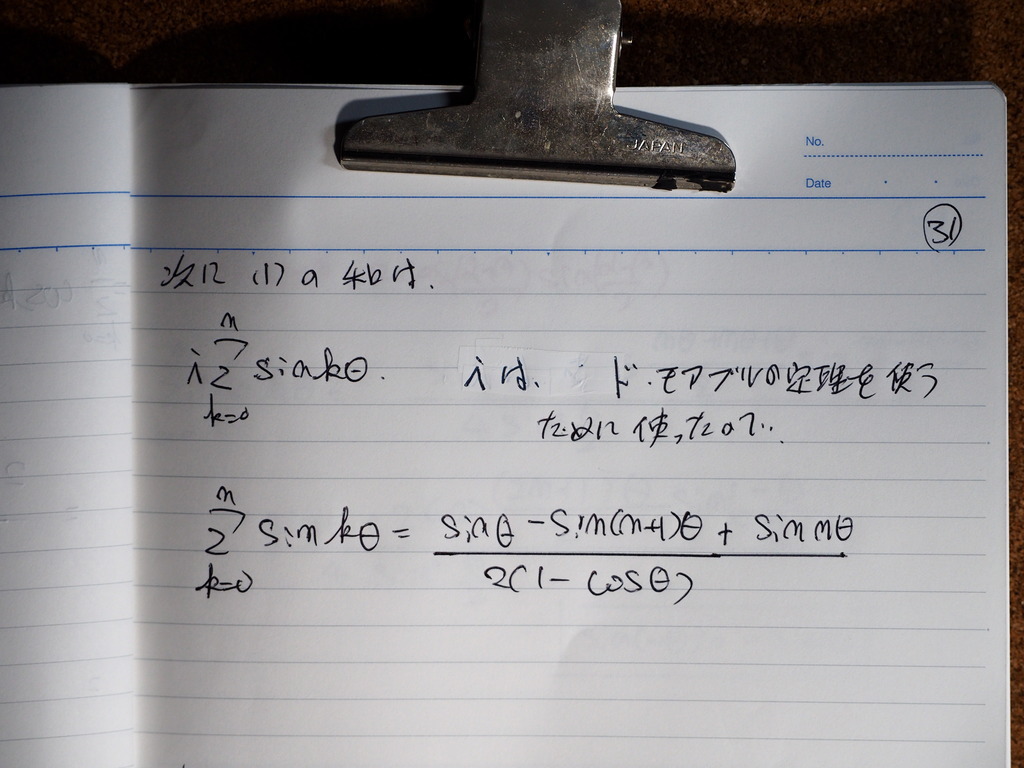 JAPAN
No.
Date
31
次に (1) の 和は.
i∑[k=0→n] sin kθ. iは、ド・モアブルの定理を使う
ために使ったので..
∑[k=0→n] sin kθ = (sinθ - sin(n+1)θ + sin nθ) / 2(1 - cosθ)